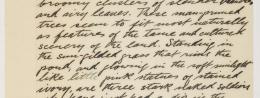 broomy clusters of slender branches
and airy leaves. These many-armed
trees seem to fit most naturally
as features of the tame and cultured
scenery of the land. Standing in
the sun-gilded grass that rims the
pond, and glowing in the soft sunlight
like little pink statues of stained
ivory, are three stark naked soldiers